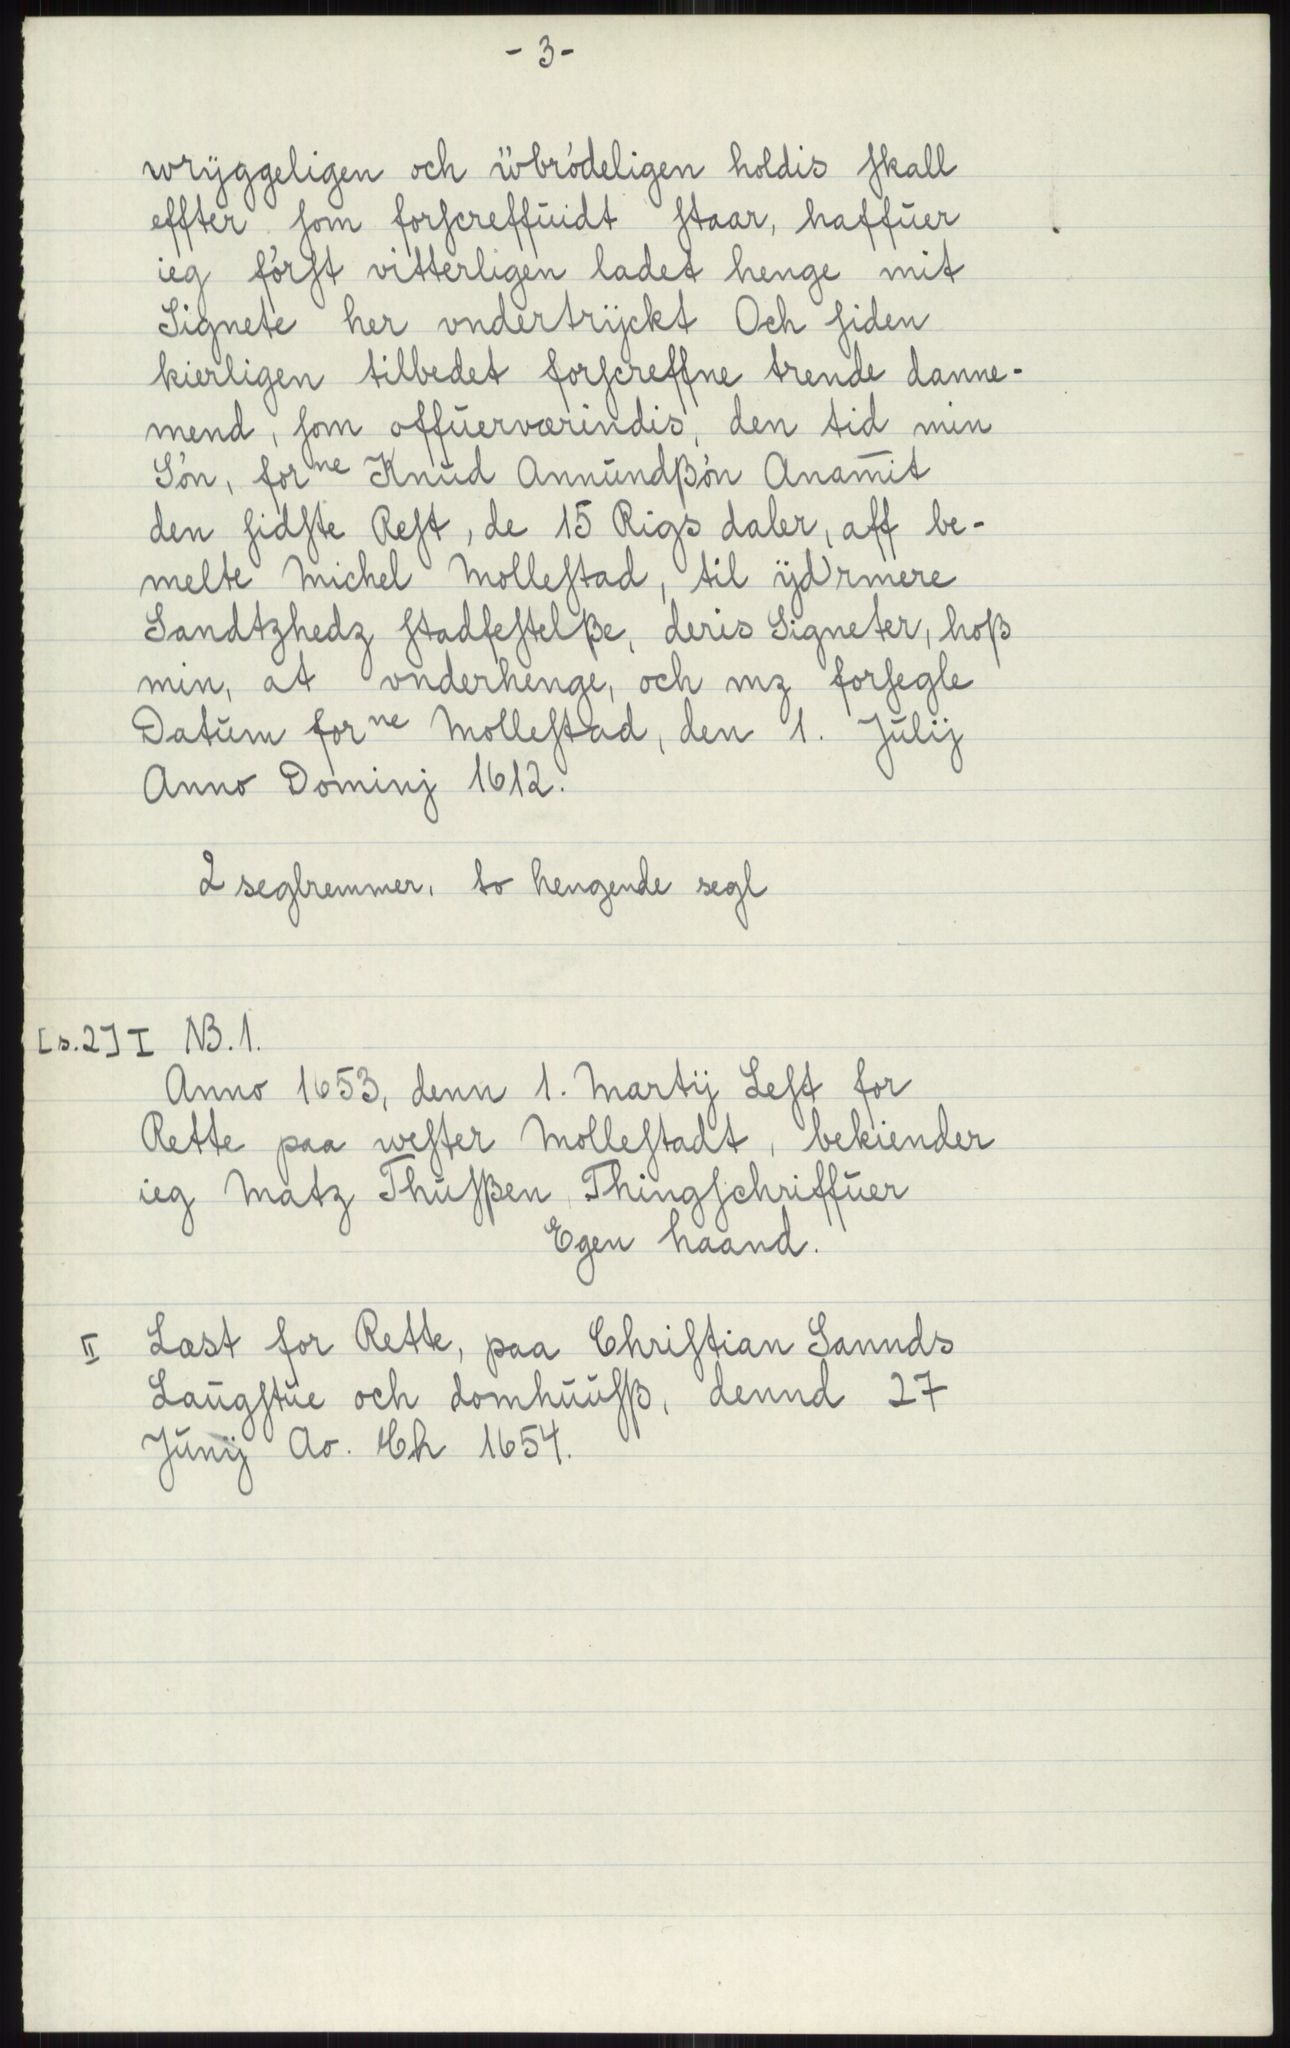 - 3 -
wrÿggeligen och ẅbródeligen holdis skall
effter som forscreffuidt staar, haffuer
ieg fórst vitterligen ladet henge mit
Signete her vndertrÿckt Och siden
kierligen tilbedet forscreffne trende danne-
mend, som offuerværindis, den tid min
Són, forne Knud Annundßón Anamit
den sidste Rest, de 15 Rigs daler, aff be-
melte Michel Mollestad, til ÿdrmere
Sandtzhedz stadfestelße, deris Signeter, hoß
min, at vnderhenge, och mz forsegle
Datum forne Mollestad, den 1. Julij
Anno Dominj 1612.
2 seglremmer, to hengende segl
[s.2] I NB. 1.
Anno 1653, denn 1. Martÿ Lest for
Rette paa wester Mollestadt, bekiender
ieg Matz Thusßen Thingschriffuer
Egen haand.
II Læst for Rette, paa Christian Sannds
Laugstue och domhuusß, dennd 27
Junÿ Ao. Ch 1654.